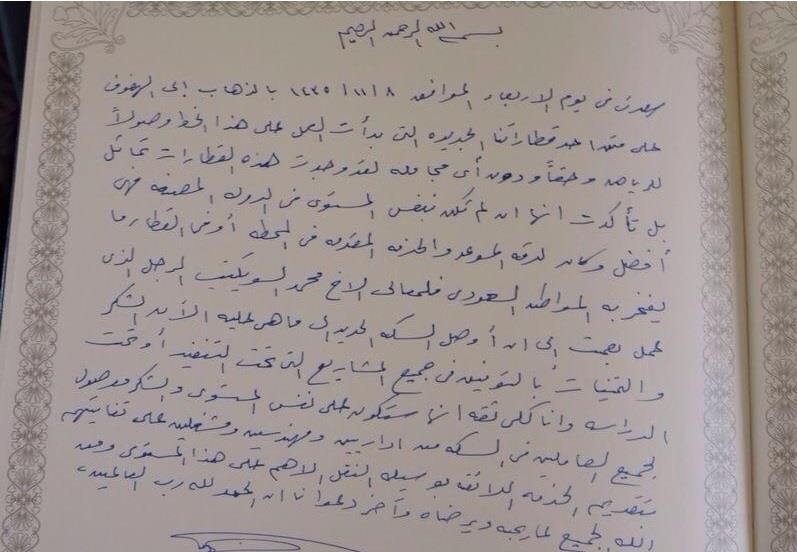 بسم الله الرحمن الرحيم
سعدت في يوم الاربعاء الموافق ١٤٣٥/١١/٨ بالذهاب إلى الهفوف
على متن احد قطاراتنا الجديده التي بدأت العمل على هذا الخط وصولاً
للرياض وحقاً ودون أي مجامله لقد وجدت هذه القطارات تماثل
بل تأكدت انها ان لم تكن بنفس المستوى في الدول المصنعه فهي
أفضل وكان لدقه الموعد والخدمه المقدمه في المحطه أو في القطار ما
يفخر به المواطن السعودي فلمعالي الاخ محمد السويكت الرجل الذي
عمل بصمت الى ان أوصل السكه الحديد الى ما هي عليه الآن الشكر
والتمنيات بالتوفيق في جميع المشاريع التي تحت التنفيذ أو تحت
الدراسه وانا كلي ثقه انها ستكون على نفس المستوى والشكر موصول
لجميع العاملين في السكه من اداريين ومهندسين ومشغلين على تفانيهم
بتقديم الخدمه اللائقه بوسيله النقل الاهم على هذا المستوى وفق
الله الجميع لما يحبه ويرضاه وآخر دعوانا ان الحمد لله رب العالمين،